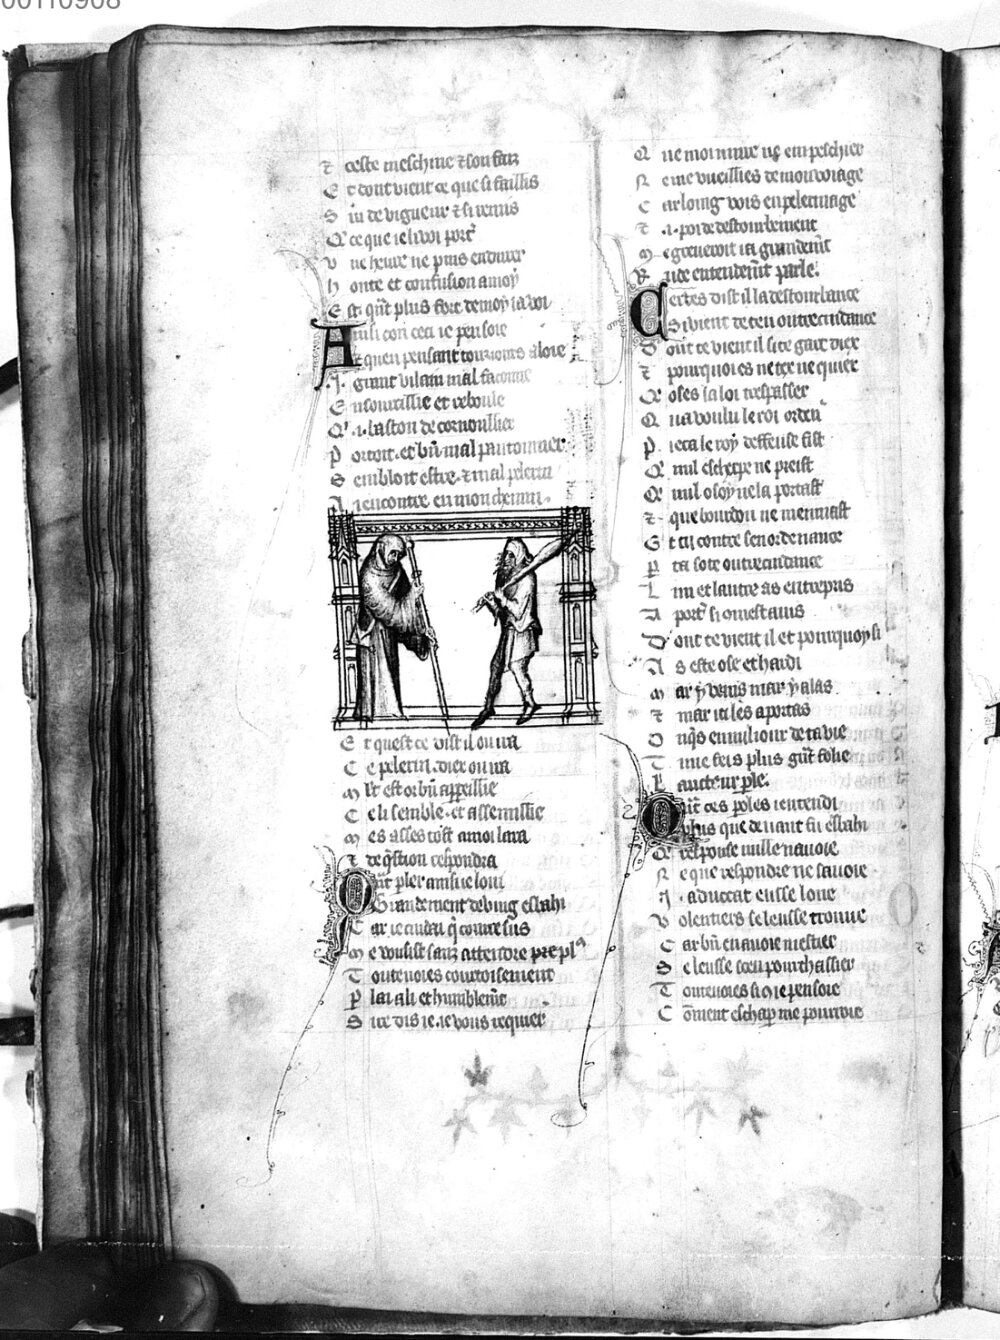 00110908
⁊ ceste meschine ⁊ son fais
E t dont vient ce que si faillis
S ui de vigueur ⁊ si
Q' ce que ie li voi port'
V ne heure ne puis endurer
h onte et confusion a moy
E st qͥt plus fort de moy la voi
A insi con ceci ie pensoie
Et quen pensant tousiours aloie
.I. grant vilain mal faconne
E nsourcillie et reboule
Q' .i. baston de cornoullier
P ortoit. et bn̄ mal pautonnier
S embloit estre. ⁊ mal pelerin
A iencontre en mon chemin.
E t quest ce dist il ou va
C e pelerin. diex ou va
M lt est or bn̄ appeillie
C e li semble. et
M es asses tost a moi lara
⁊ de q̄stion respondra
Q ūt pler ainsi le loui
G randement de buig esbahi
C ar ie cuidai q̄ courre sus
M e vousist sanz attendre plꝰ
T outeuoies courtoisement
P lai a li et humblemēt
S ire dis ie. ie vous requier
Q ue moi nuire ne empeschier
N e me vueillies de mon voiage
C ar loing vois en pelerinage
⁊ .i. poi de destourbement
M e greueroit ia grandemēt
R ude entendemēt parle.
C ertes dist il la destourbance
S i vient de ten outrecuidance
D ont te vient il se gart diex
⁊ pourquoi es ne ne quier
Q' oses la loi trespasser
Q ua voulu le roi orden
P ieca le roy deffense fist
Q' nul escherpe ne preist
Q' nul osoy ne la portast
⁊ que bourdon ne
E t tu contre son ordenance
P ta sote outrecuidance
L un et lautre as entrepris
A port' si
D ont te vient il et pourquoy si
A s este ose et hardi
M ar y venis mar y alas
⁊ mar ici les aportas
O nq̄s en nul iour de ta vie
T u ne feis plus gn̄t folie
L aucteur ple.
Q ūt ces poles ientendi
plus que deuant fu esbahi
Q' response nulle nauoie
N e que respondre ne sauoie
.I. aduocat eusse loue
V olentiers se leusse trouue
C ar bn̄ en auoie mestier
S e leusse sceu pourchassier
T outeuoies si q̄ ie pensoie
C ōment eschaper me pourroie